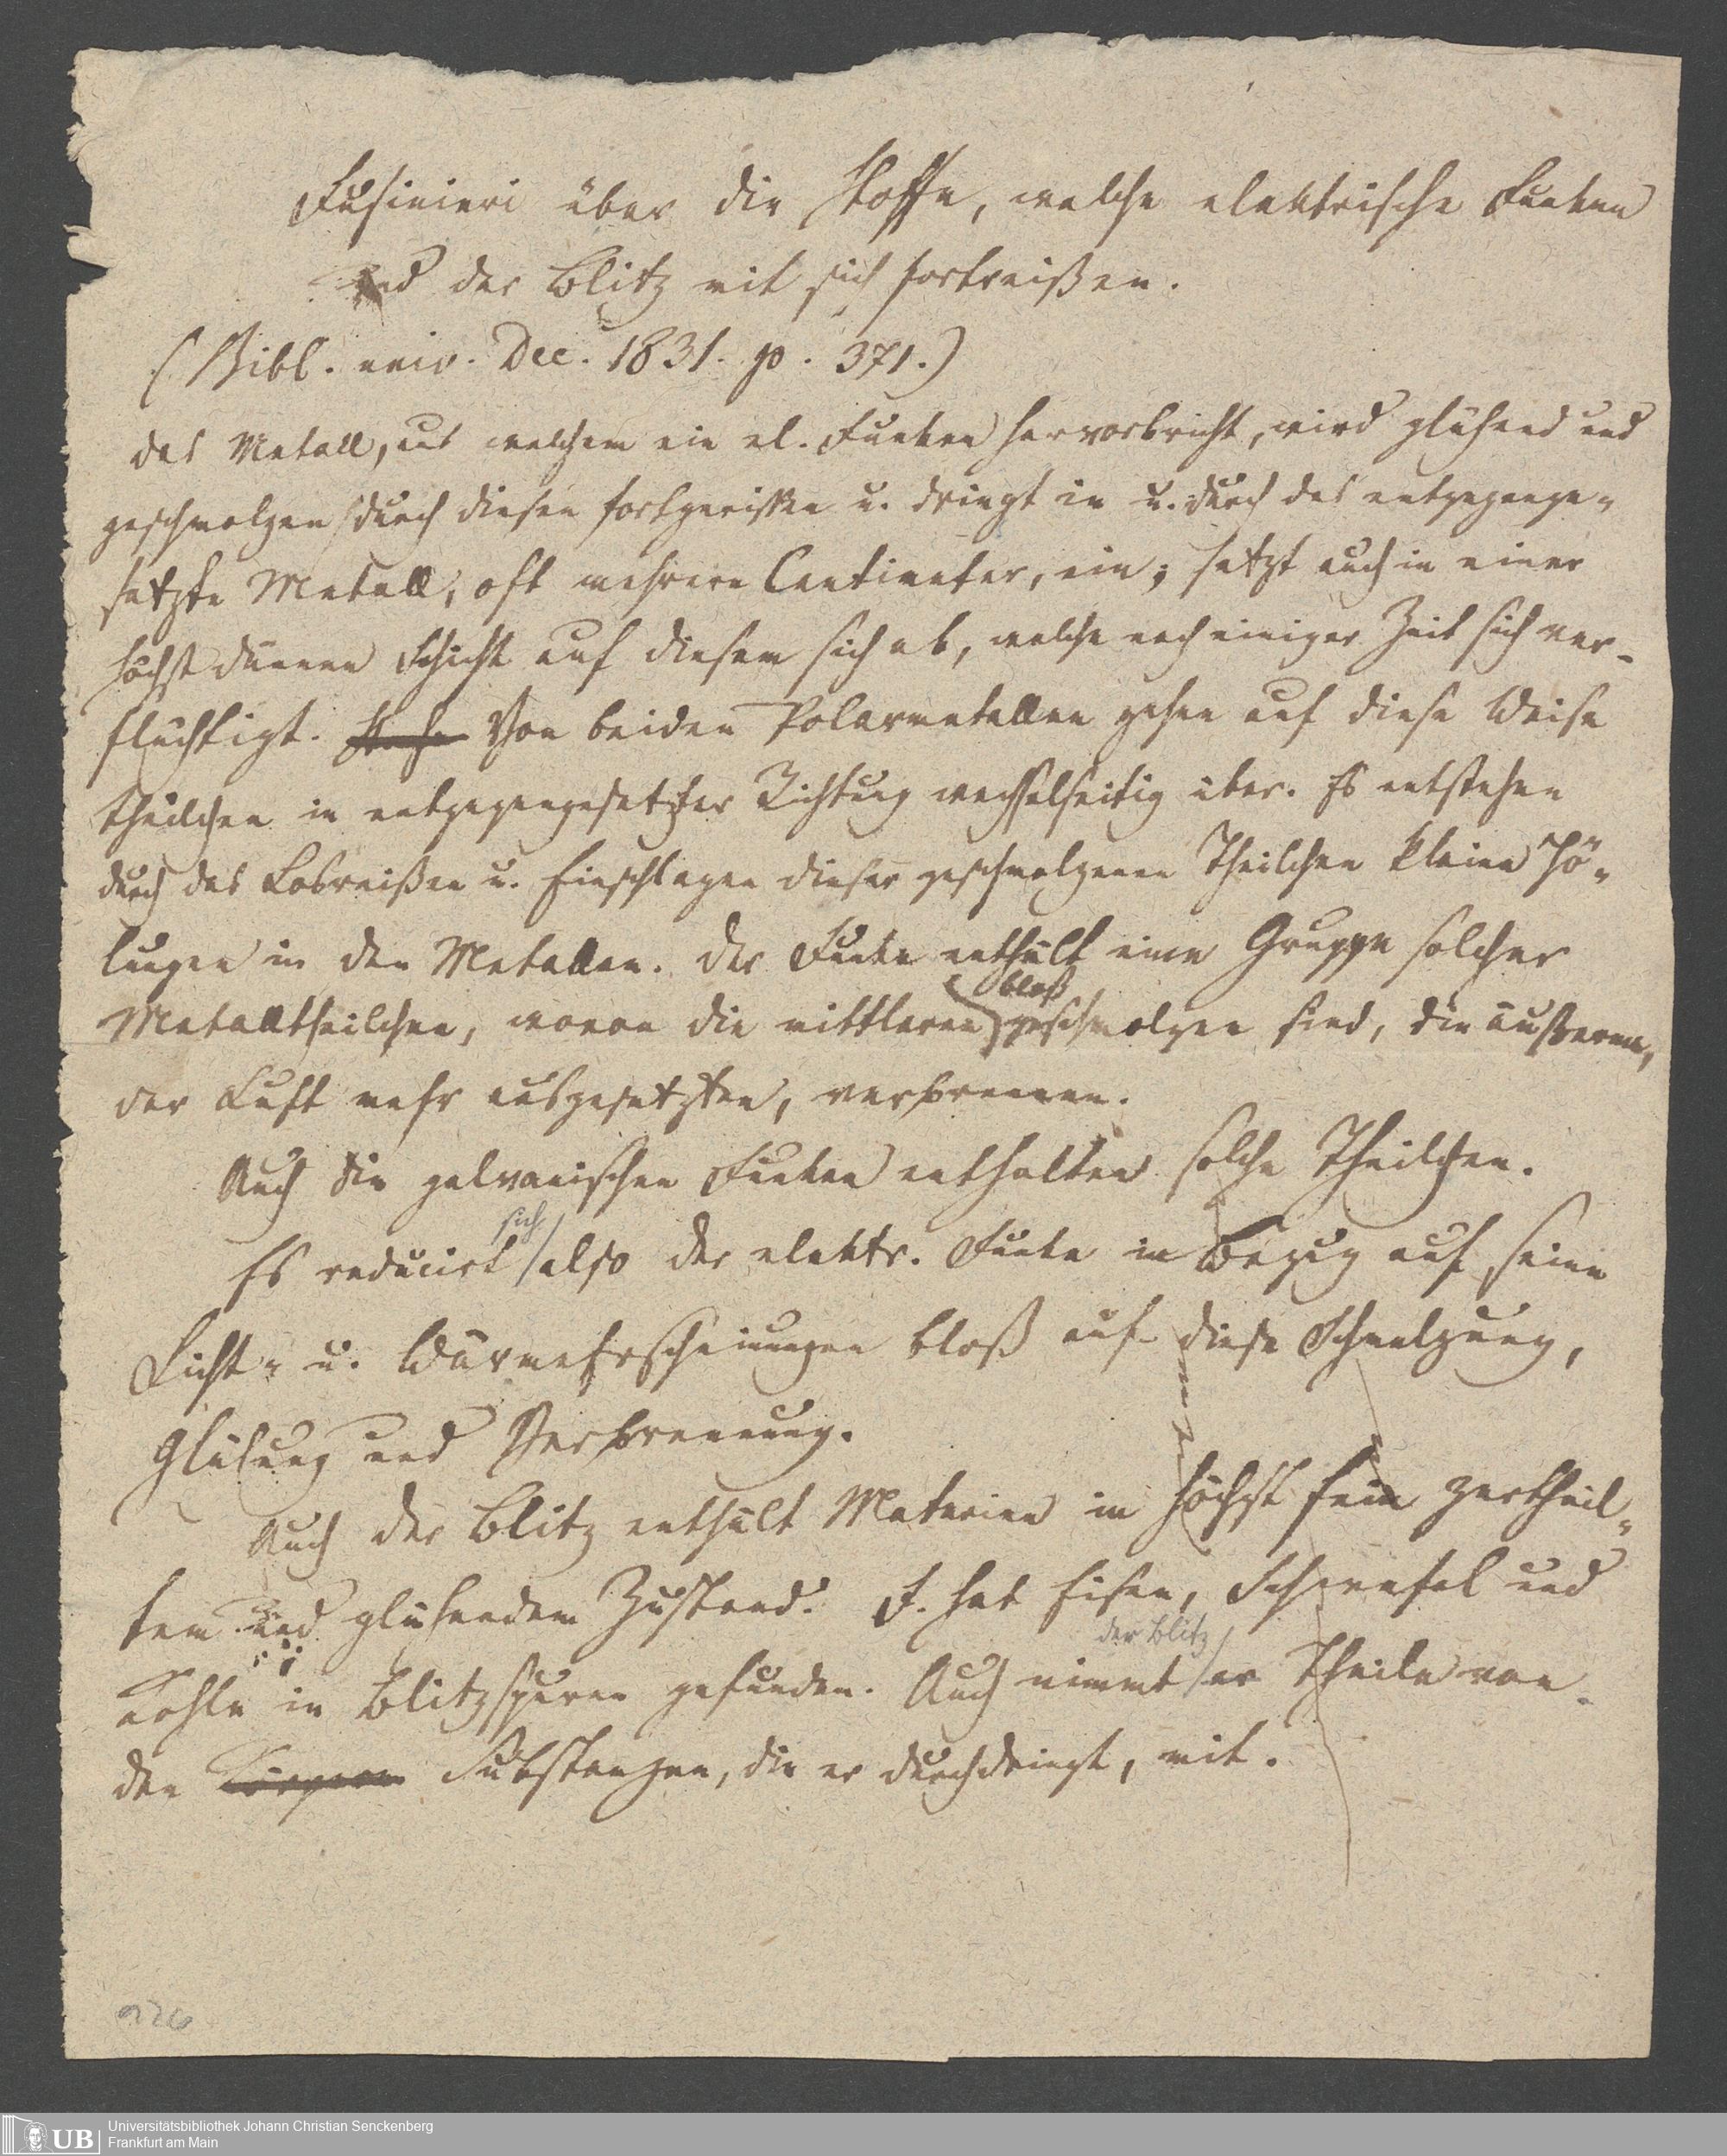 Fusinieri über die Stoffe, welche elektrische Funken
und der Blitz mit sich fortreißen.
(Bibl. univ. Dec. 1831. p. 371.)
das Metall, aus welchem ein el. Funken hervorbricht, wird glühend und
geschmolzen durch diesen fortgerissen u. dringt in u. durch das entgegenge-
setzte Metall, oft mehrere Centimeter, ein; setzt auch in einer
höchst dünnen Schicht auf diesem sich ab, welche nach einiger Zeit sich ver-
flüchtigt. Von beiden Polarmetallen gehen auf diese Weise
Theilchen in entgegengesetzter Richtung wechselseitig über. Es entstehen
durch das Losreißen u. Einschlagen dieser geschmolzenen Theilchen kleine Hö-
lungen in den Metallen. Der Funke enthält eine Gruppe solcher
Metalltheilchen, wovon die mittleren bloß geschmolzen sind, die äußeren,
der Luft mehr ausgesetzten, verbrennen.
Auch die galvanischen Funken enthalten solche Theilchen.
Es reducirt sich also der elektr. Funke in Bezug auf seine
Licht- u. Wärmeerscheinungen bloß auf diese Schmelzung,
Glühung und Verbrennung.
Auch der Blitz enthält Materien in höchst fein zertheil-
tem und glühendem Zustand. F. hat Eisen, Schwefel und
Kohle in Blitzspuren gefunden. Auch nimmt der Blitz er Theile von
den Körpern Substanzen, die er durchdringt, mit.
926
UB
Universitätsbibliothek Johann Christian Senckenberg
Frankfurt am Main